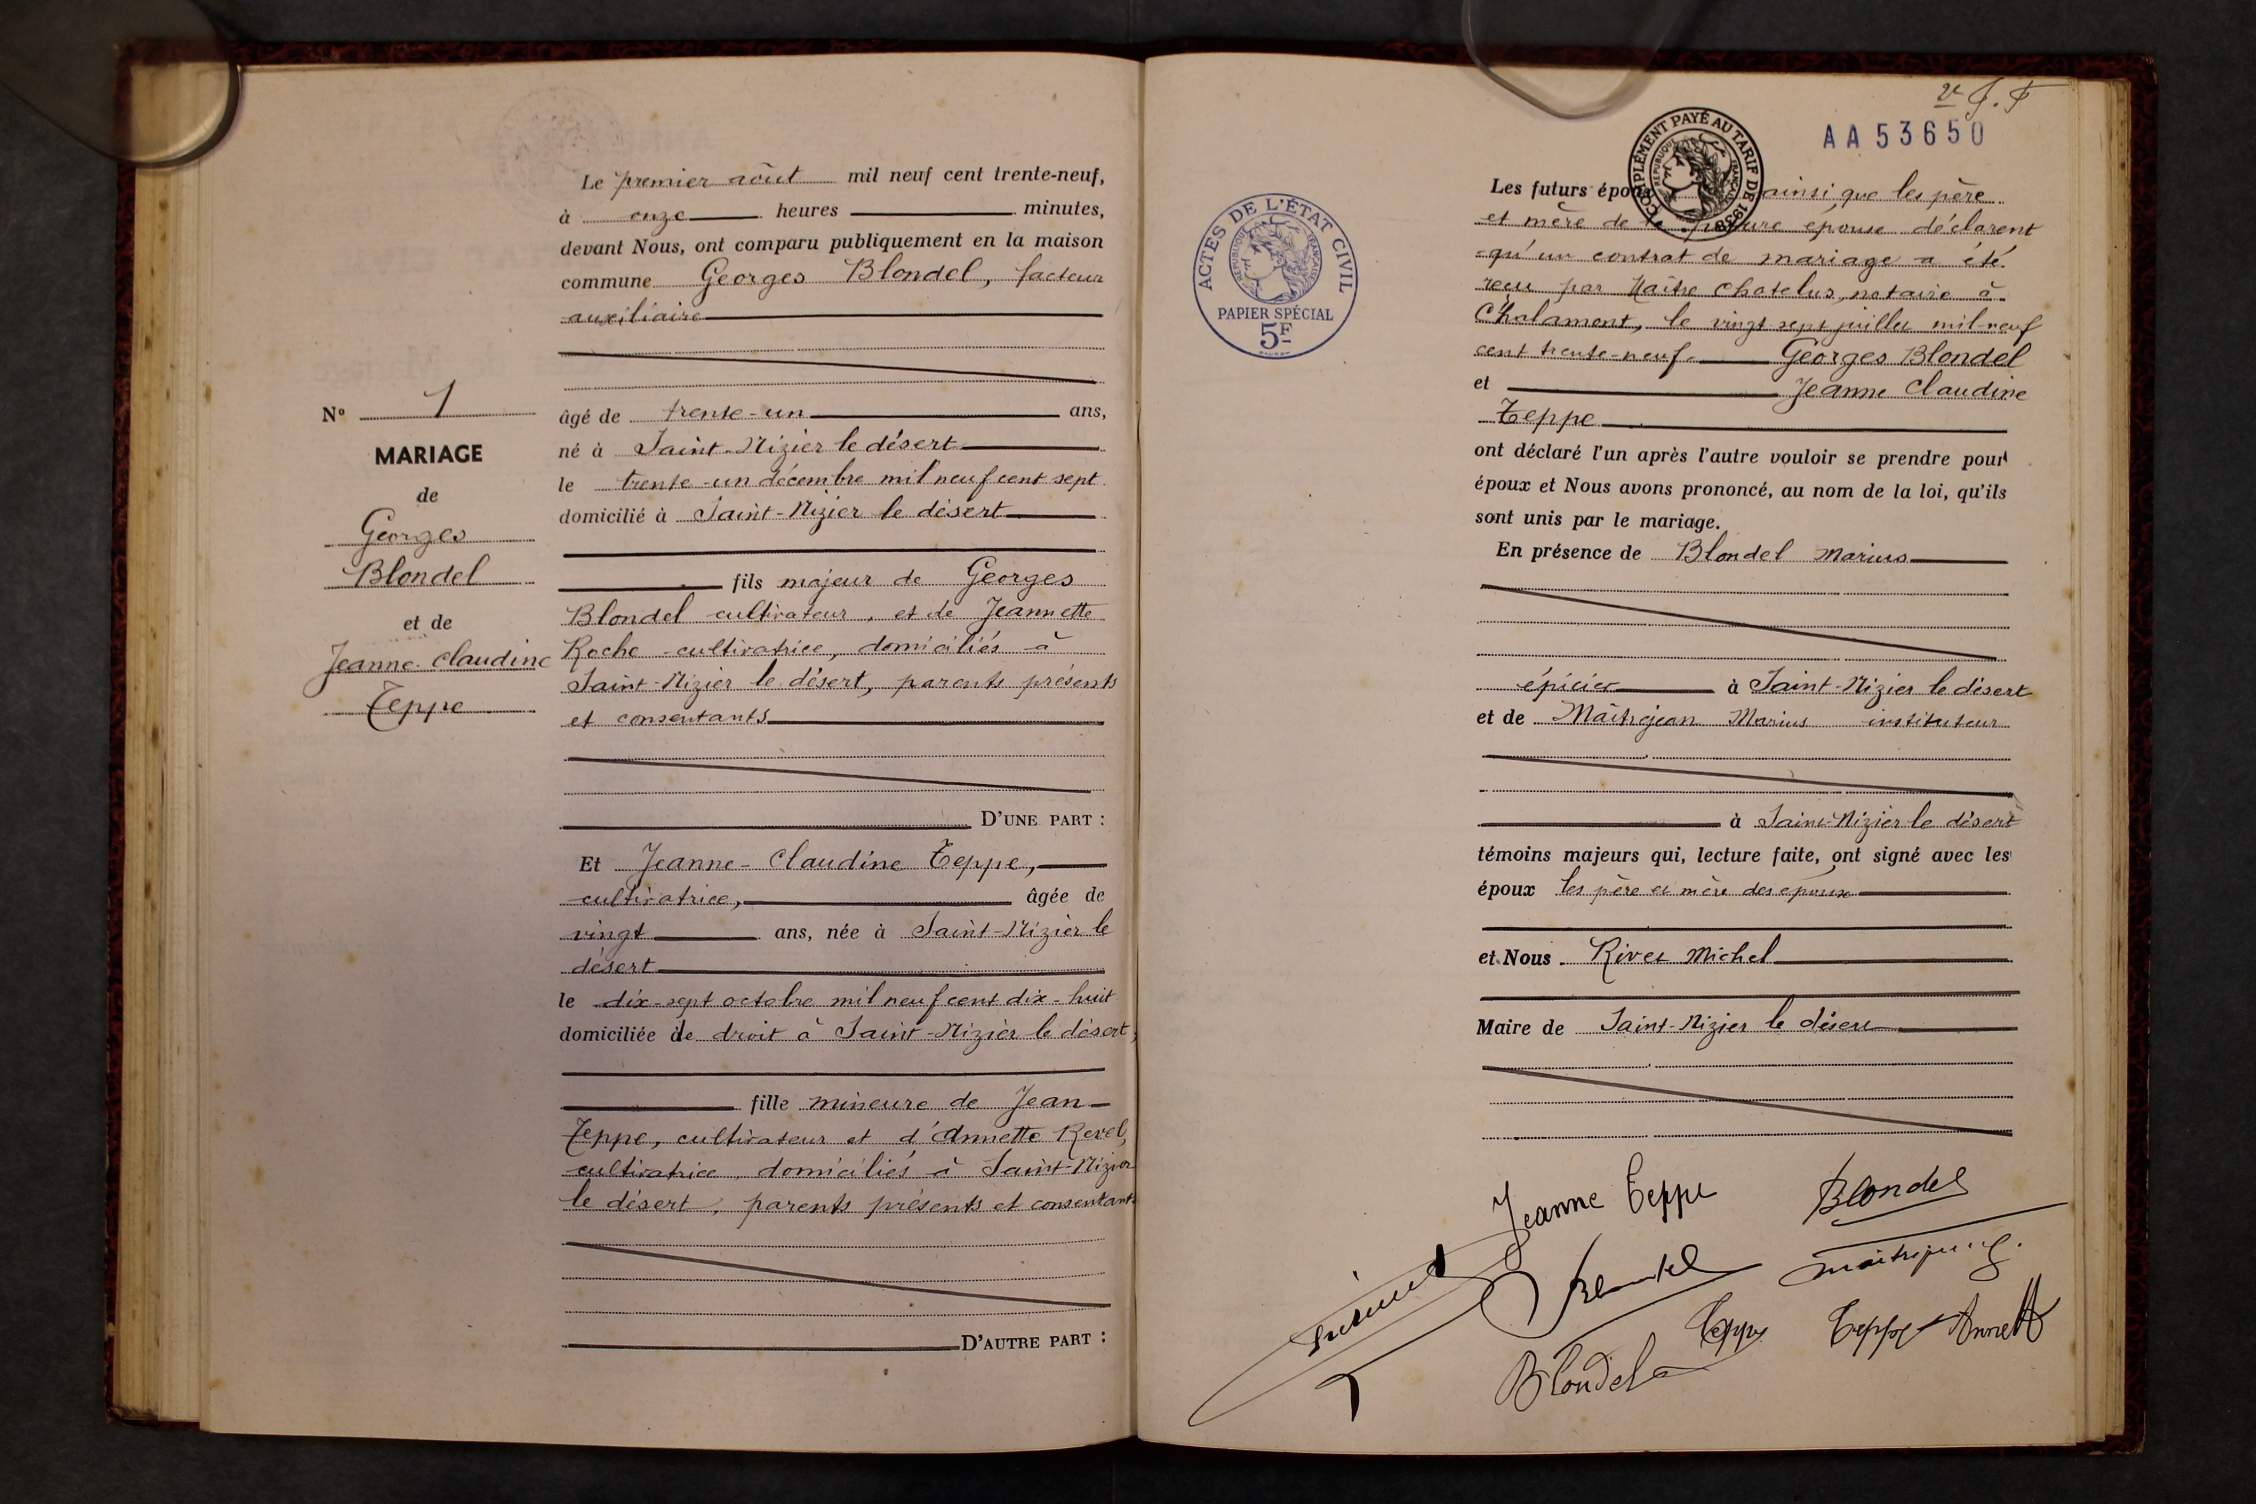 Le premier août mil neuf cent trente-neuf,
à onze heures minutes,
devant Nous, ont comparu publiquement en la maison
commune Georges Blondel, facteur
auxiliaire
N° 1
MARIAGE
de
Georges
Blondel
et de
Jeanne-Claudine
Teppe
âgé de trente-un ans,
né à Saint-Nizier le désert
le trente-un décembre mil neuf cent sept
domicilié à Saint-Nizier le désert
fils majeur de Georges
Blondel cultivateur, et de Jeannette
Roche cultivatrice, domiciliés à
Saint-Nizier le désert, parents présents
et consentants
D'UNE PART :
Et Jeanne-Claudine Teppe,
cultivatrice, âgée de
vingt ans, née à Saint-Nizier le
désert
le dix-sept octobre mil neuf cent dix-huit
domiciliée de droit à Saint-Nizier le désert,
fille mineure de Jean
Teppe, cultivateur et d'Annette Revel,
cultivatrice, domiciliés à Saint-Nizier
le désert, parents présents et consentants
D'AUTRE PART :
AA53650
COMPLÉMENT PAYÉ AU TARIF DE 1938
RÉPUBLIQUE FRANÇAISE
ACTES DE L'ÉTAT CIVIL
RÉPUBLIQUE FRANÇAISE
PAPIER SPÉCIAL
5F
Les futurs épo ainsi que les père
et mère de la future épouse déclarent
qu'un contrat de mariage a été
reçu par Maître Chatelus, notaire à
Chalamont, le vingt sept juillet mil-neuf
cent trente-neuf. Georges Blondel
et Jeanne Claudine
Teppe
ont déclaré l'un après l'autre vouloir se prendre pour
époux et Nous avons prononcé, au nom de la loi, qu'ils
sont unis par le mariage.
En présence de Blondel Marius
épicier à Saint-Nizier le désert
et de Maîtrejean Marius instituteur
à Saint-Nizier le désert
témoins majeurs qui, lecture faite, ont signé avec les
époux les père et mère des époux
et Nous Rivet Michel
Maire de Saint-Nizier le désert
Jeanne Teppe
Blondel
Blondel
Maitrejean
Teppe
Teppe Annette
Blondel